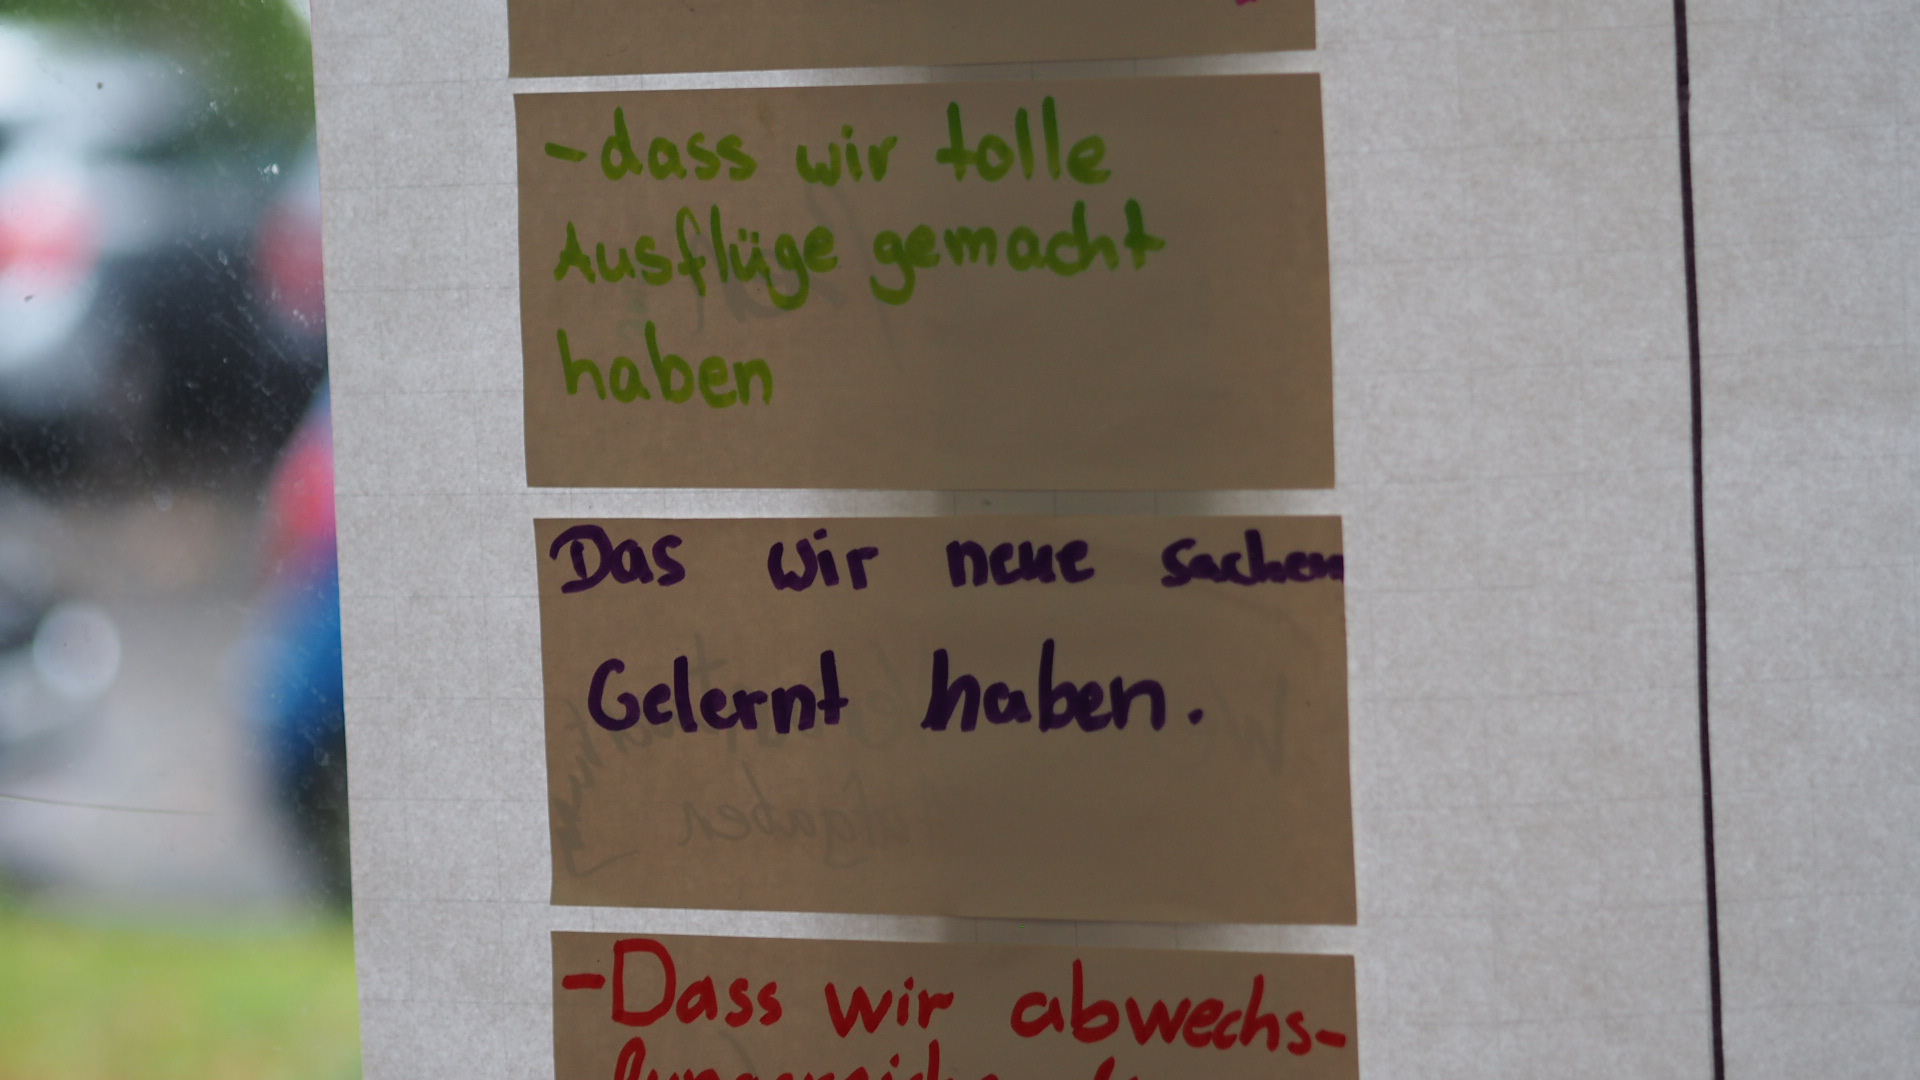 -dass wir tolle
Ausflüge gemacht
haben
Das wir neue sachen
Gelernt haben.
-Dass wir abwechs-